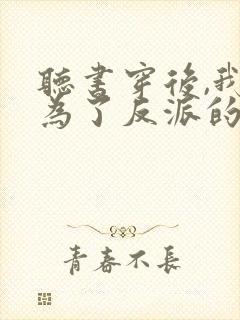 聽書穿後,我
為了反派的
青春不長